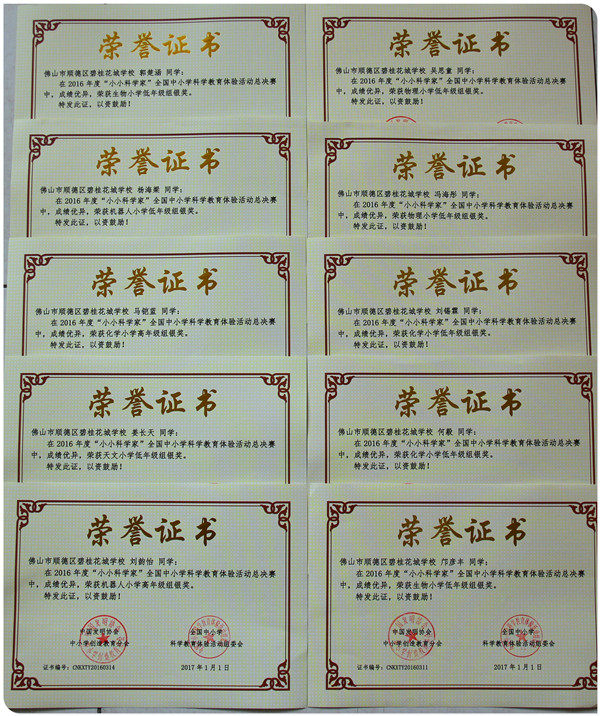 荣誉证书
佛山市顺德区碧桂花城学校 郭楚涵 同学：
在 2016 年度“小小科学家”全国中小学科学教育体验活动总决赛
中，成绩优异，荣获生物小学低年级组银奖。
特发此证，以资鼓励！
荣誉证书
佛山市顺德区碧桂花城学校 吴思童 同学：
在 2016 年度“小小科学家”全国中小学科学教育体验活动总决赛
中，成绩优异，荣获物理小学低年级组银奖。
特发此证，以资鼓励！
荣誉证书
佛山市顺德区碧桂花城学校 杨海粼 同学：
在 2016 年度“小小科学家”全国中小学科学教育体验活动总决赛
中，成绩优异，荣获机器人小学低年级组银奖。
特发此证，以资鼓励！
荣誉证书
佛山市顺德区碧桂花城学校 冯海彤 同学：
在 2016 年度“小小科学家”全国中小学科学教育体验活动总决赛
中，成绩优异，荣获物理小学低年级组银奖。
特发此证，以资鼓励！
荣誉证书
佛山市顺德区碧桂花城学校 马铠蓝 同学：
在 2016 年度“小小科学家”全国中小学科学教育体验活动总决赛
中，成绩优异，荣获化学小学高年级组银奖。
特发此证，以资鼓励！
荣誉证书
佛山市顺德区碧桂花城学校 刘锡霖 同学：
在 2016 年度“小小科学家”全国中小学科学教育体验活动总决赛
中，成绩优异，荣获化学小学低年级组银奖。
特发此证，以资鼓励！
荣誉证书
佛山市顺德区碧桂花城学校 姜长天 同学：
在 2016 年度“小小科学家”全国中小学科学教育体验活动总决赛
中，成绩优异，荣获天文小学低年级组银奖。
特发此证，以资鼓励！
荣誉证书
佛山市顺德区碧桂花城学校 何毅 同学：
在 2016 年度“小小科学家”全国中小学科学教育体验活动总决赛
中，成绩优异，荣获化学小学低年级组银奖。
特发此证，以资鼓励！
荣誉证书
佛山市顺德区碧桂花城学校 刘韵怡 同学：
在 2016 年度“小小科学家”全国中小学科学教育体验活动总决赛
中，成绩优异，荣获机器人小学高年级组银奖。
特发此证，以资鼓励！
中国发明协会 全国中小学
中小学创造教育分会 科学教育体验活动组委会
证书编号：CNKXTY20160314 2017 年 1 月 1 日
荣誉证书
佛山市顺德区碧桂花城学校 邝彦丰 同学：
在 2016 年度“小小科学家”全国中小学科学教育体验活动总决赛
中，成绩优异，荣获生物小学低年级组银奖。
特发此证，以资鼓励！
中国发明协会 全国中小学
中小学创造教育分会 科学教育体验活动组委会
证书编号：CNKXTY20160311 2017 年 1 月 1 日